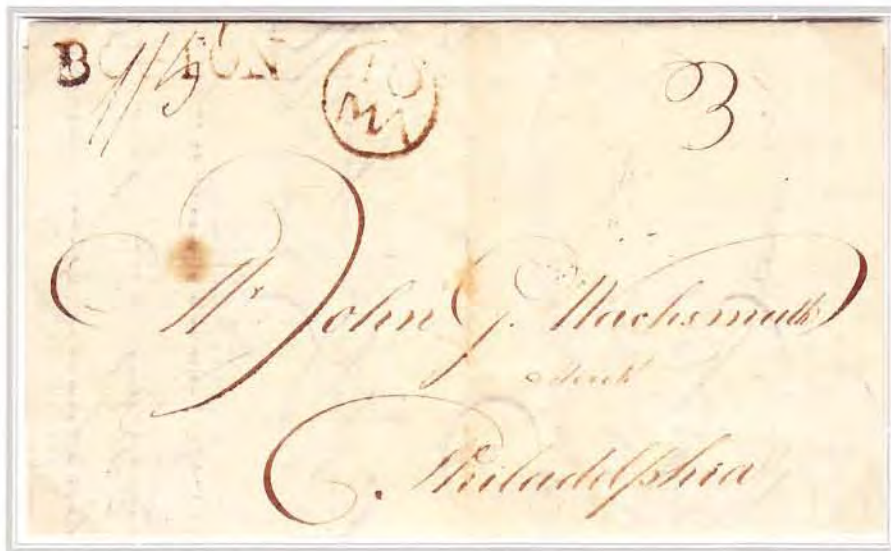 BOSTON
1/5
10
MY
3
Mr. John G. Wachsmuth
Philadelphia